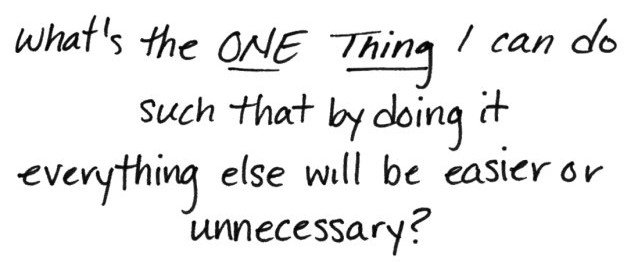 what's the ONE Thing I can do
such that by doing it
everything else will be easier or
unnecessary?